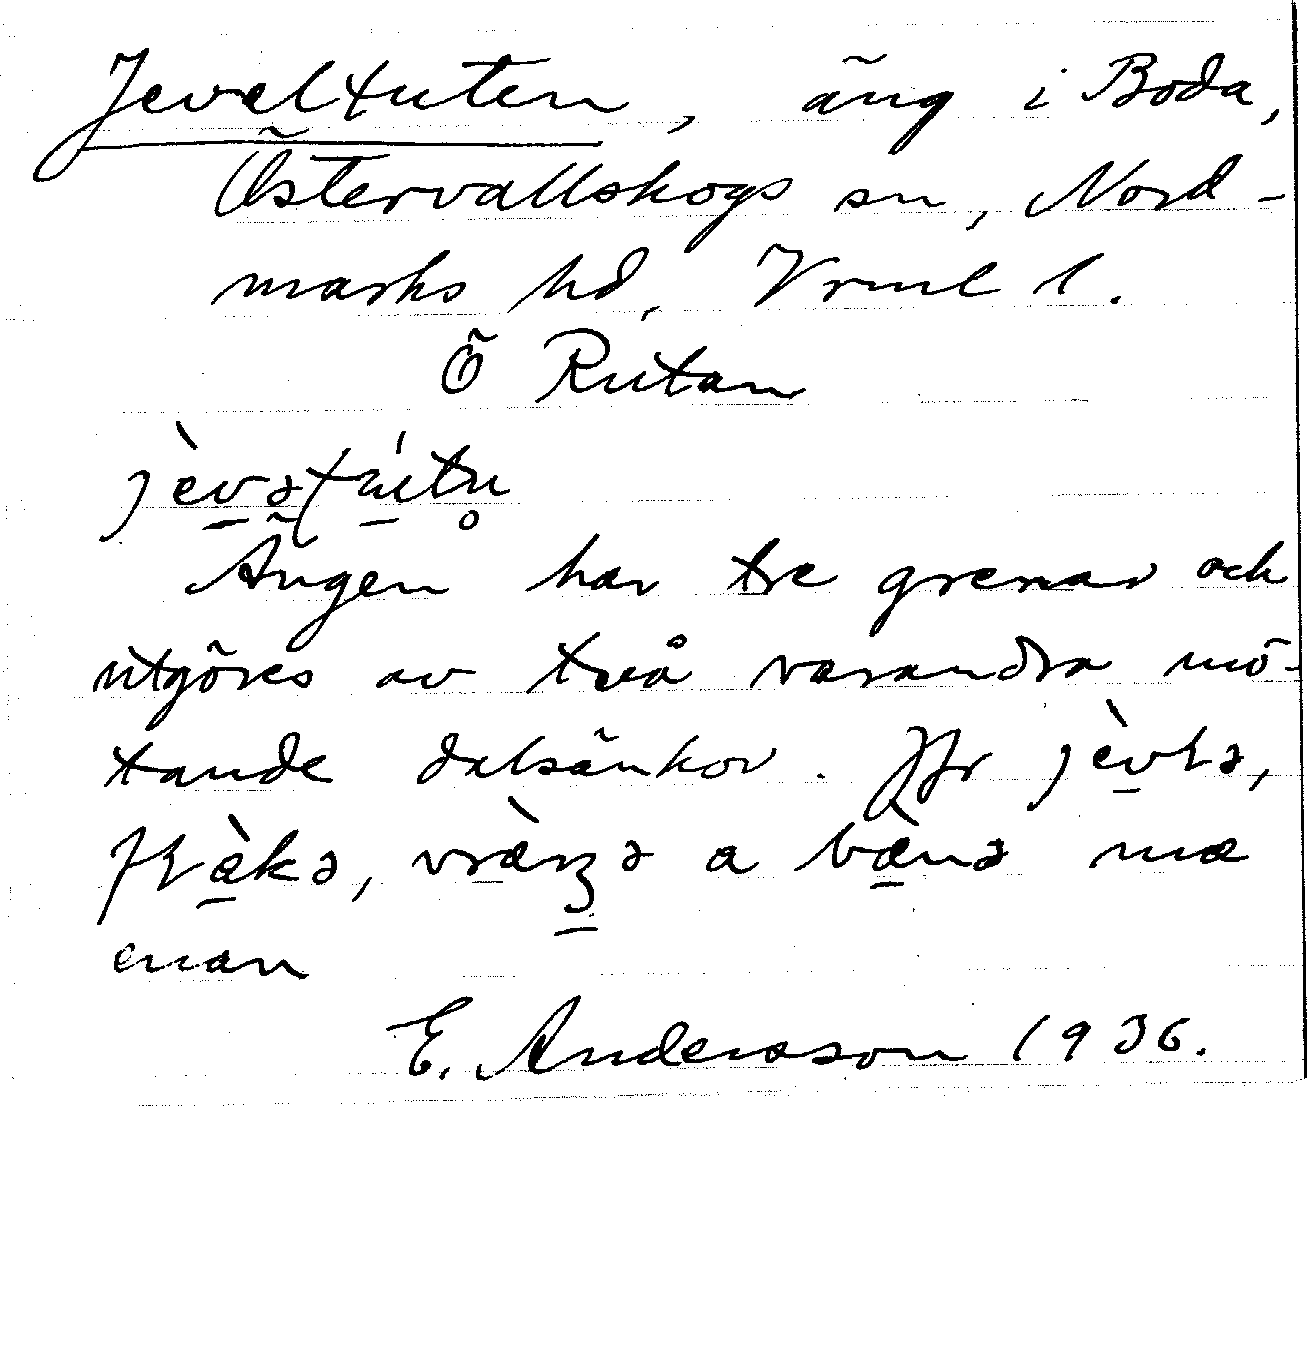 Jeveltuten, äng i Boda,
Östervallskogs sn, Nord-
marks hd, Vrml l.
Ö Rutan
Ängen har tre grenar och
utgöres av två varandra mö-
tande dalsänkor. Jfr
a mæ
enan
E. Andersson 1936.